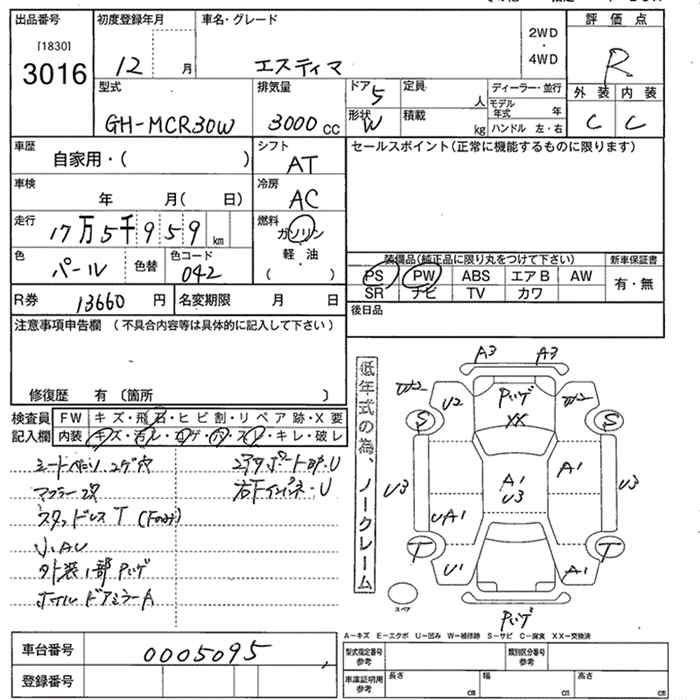 出品番号 初度登録年月 車名・グレード 評価点
[1830] 2WD
3016 12 月 エスティマ ・ R
4WD
型式 排気量 ドア 5 定員 人 ディーラー・並行 外装 内装
モデル年式 年
GH-MCR30W 3000 cc 形状 W 積載 kg ハンドル 左・右 C C
車歴 自家用・( ) シフト AT セールスポイント(正常に機能するものに限ります)
車検 年 月( 日) 冷房 AC
走行 17万5千959 km 燃料 ガソリン
軽・油
( )
色 パール 色替 色コード 042
装備品(純正品に限り丸をつけて下さい) 新車保証書
PS PW ABS エアB AW 有・無
SR ナビ TV カワ
R券 13660 円 名変期限 月 日 後日品
注意事項申告欄 (不具合内容等は具体的に記入して下さい)
修復歴 有 〔箇所 〕
検査員 FW キズ・飛石・ヒビ割・リペア跡・X要
記入欄 内装 キズ・汚レ・コゲ・穴・スレ・キレ・破レ
コゲ穴
マフラー
スタッドレス T
小AU
外装1部 Pハゲ
ホイル ドアミラーA
U
右 U
低年式の為、ノークレーム
A3 A3
W2 U2 Pハゲ W2
XX
S S
U3 A1 U3 A1 U3
UA1
T T
U1 A1
スペア
Pハゲ
A-キズ E-エクボ U-凹み W-補修跡 S-サビ C-腐食 XX-交換済
車台番号 0005095
登録番号
型式指定番号 参考 類別区分番号 参考
車庫証明用 参考 長さ cm 幅 cm 高さ cm